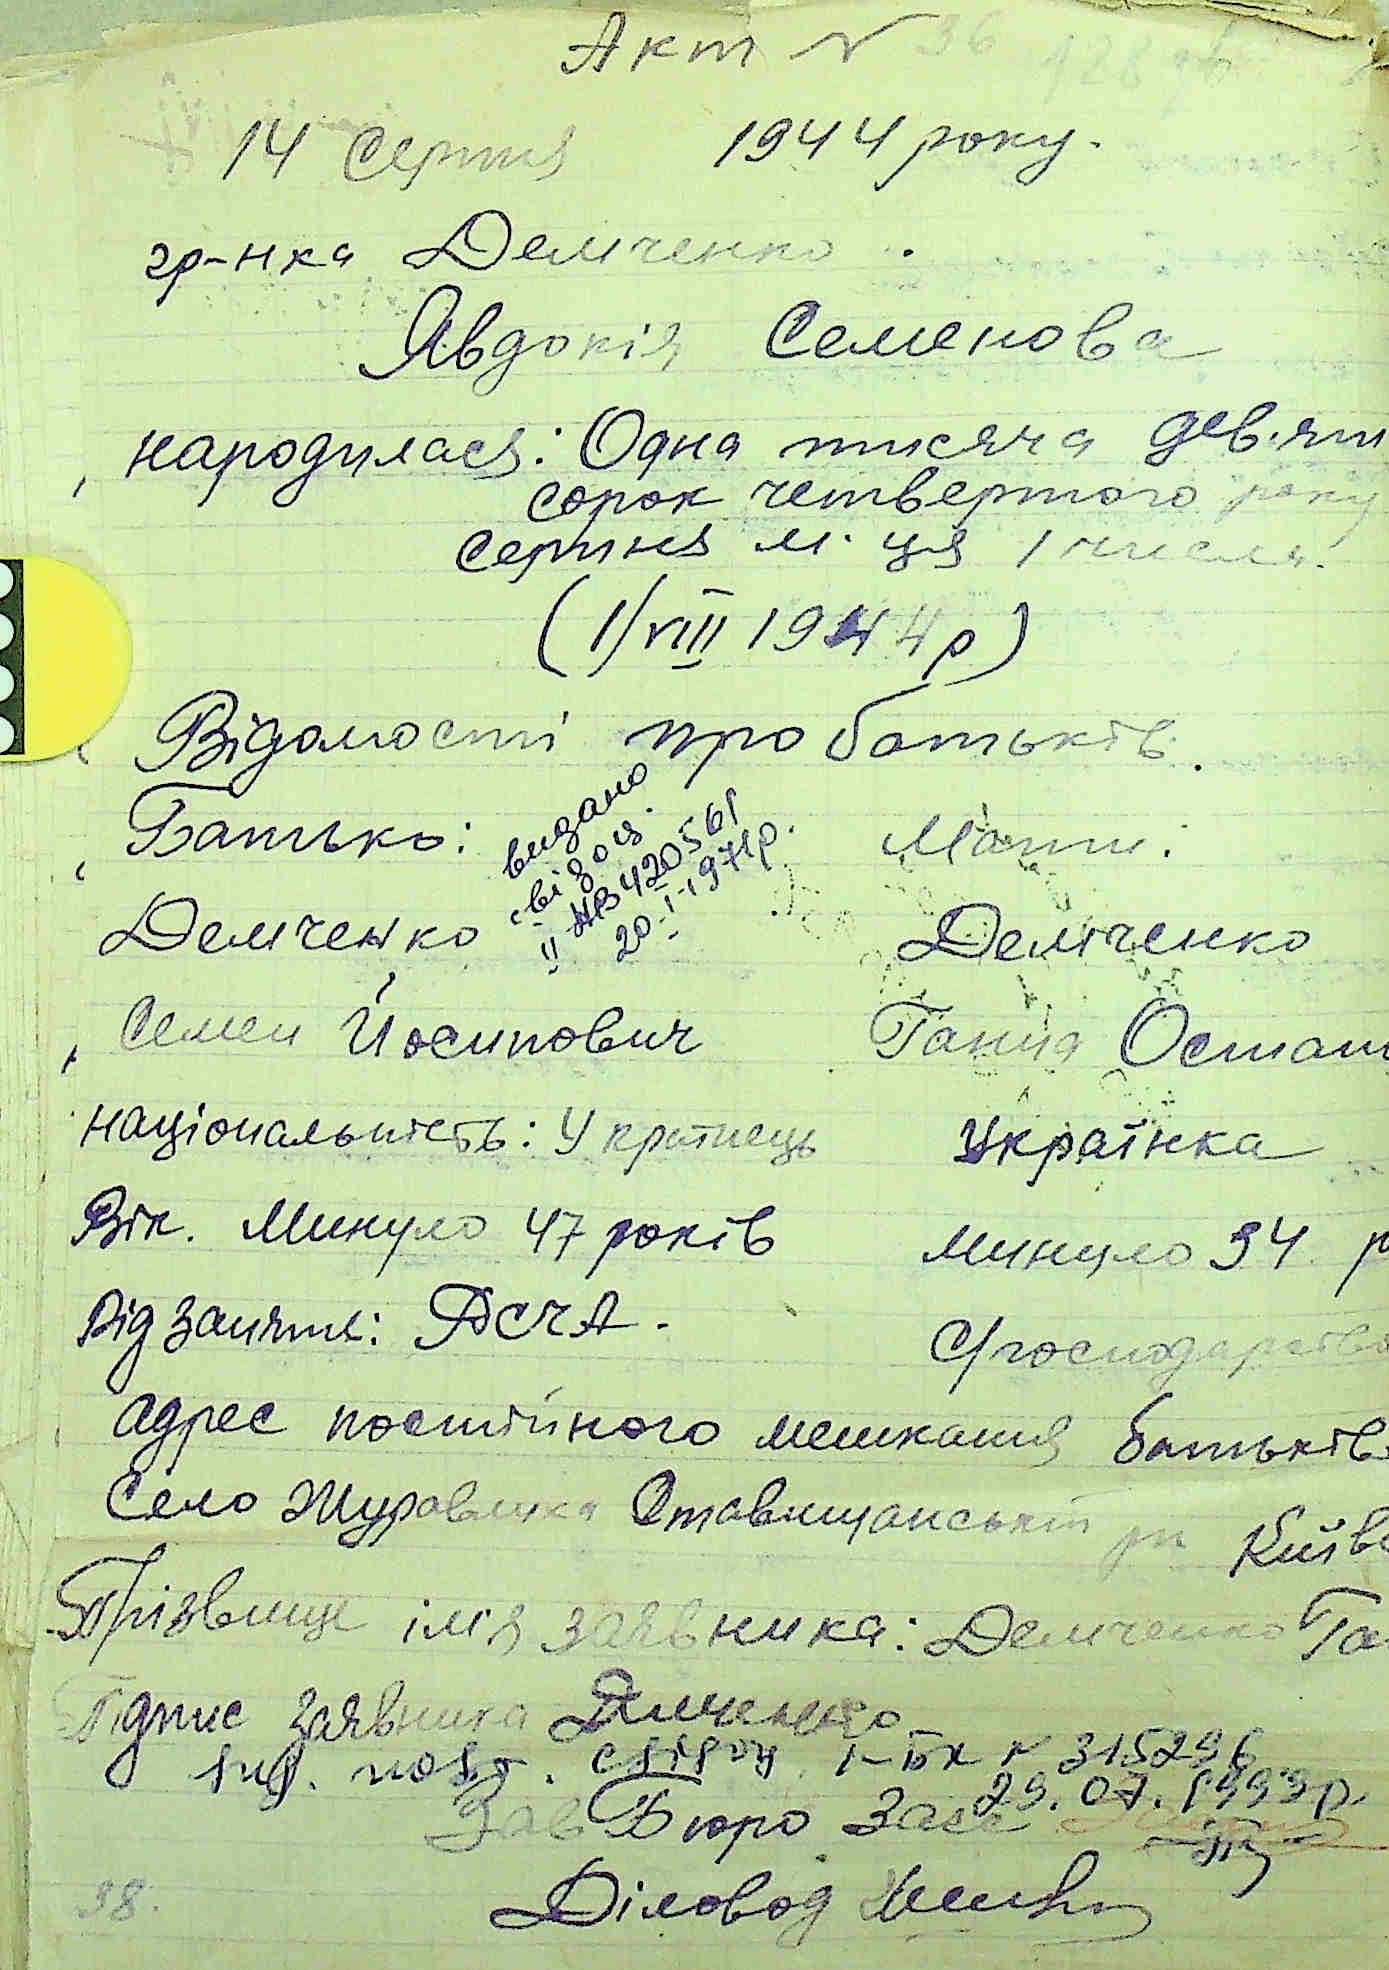 Акт N 36
14 Серпня 1944 року.
гр-нка Демченко.
Явдокія Семенова
народилася: Одна тисяча дев'ят
сорок четвертого року
серпня м-ця 1 числа.
(1/VIII 1944р)
Відомості про батьків.
Батько: Мати:
видано
свідоц.
II ЯВ 420561
20.I.1971р.
Демченко Демченко
Семен Йосипович Ганна Остап
національність: Українець Українка
Вік. Минуло 47 років минуло 34 р
Рід заняття: РСЧА. С/господарство
адрес постійного мешкання батьків
Село Журавлиха Ставищанський рн Київс
Прізвище ім'я заявника: Демченко Га
Підпис заявника Демченко
вид. повт. свідоц. I-БК N 315296
29.07.1999р.
Зав Бюро Загс
Діловод
38.